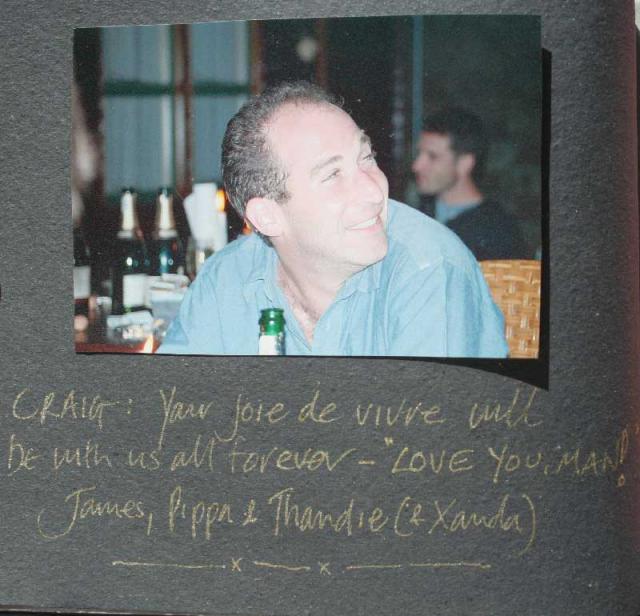 CRAIG: Your joie de vivre will
be with us all forever – "LOVE YOU, MAN!"
James, Pippa & Thandie (& Xanda)